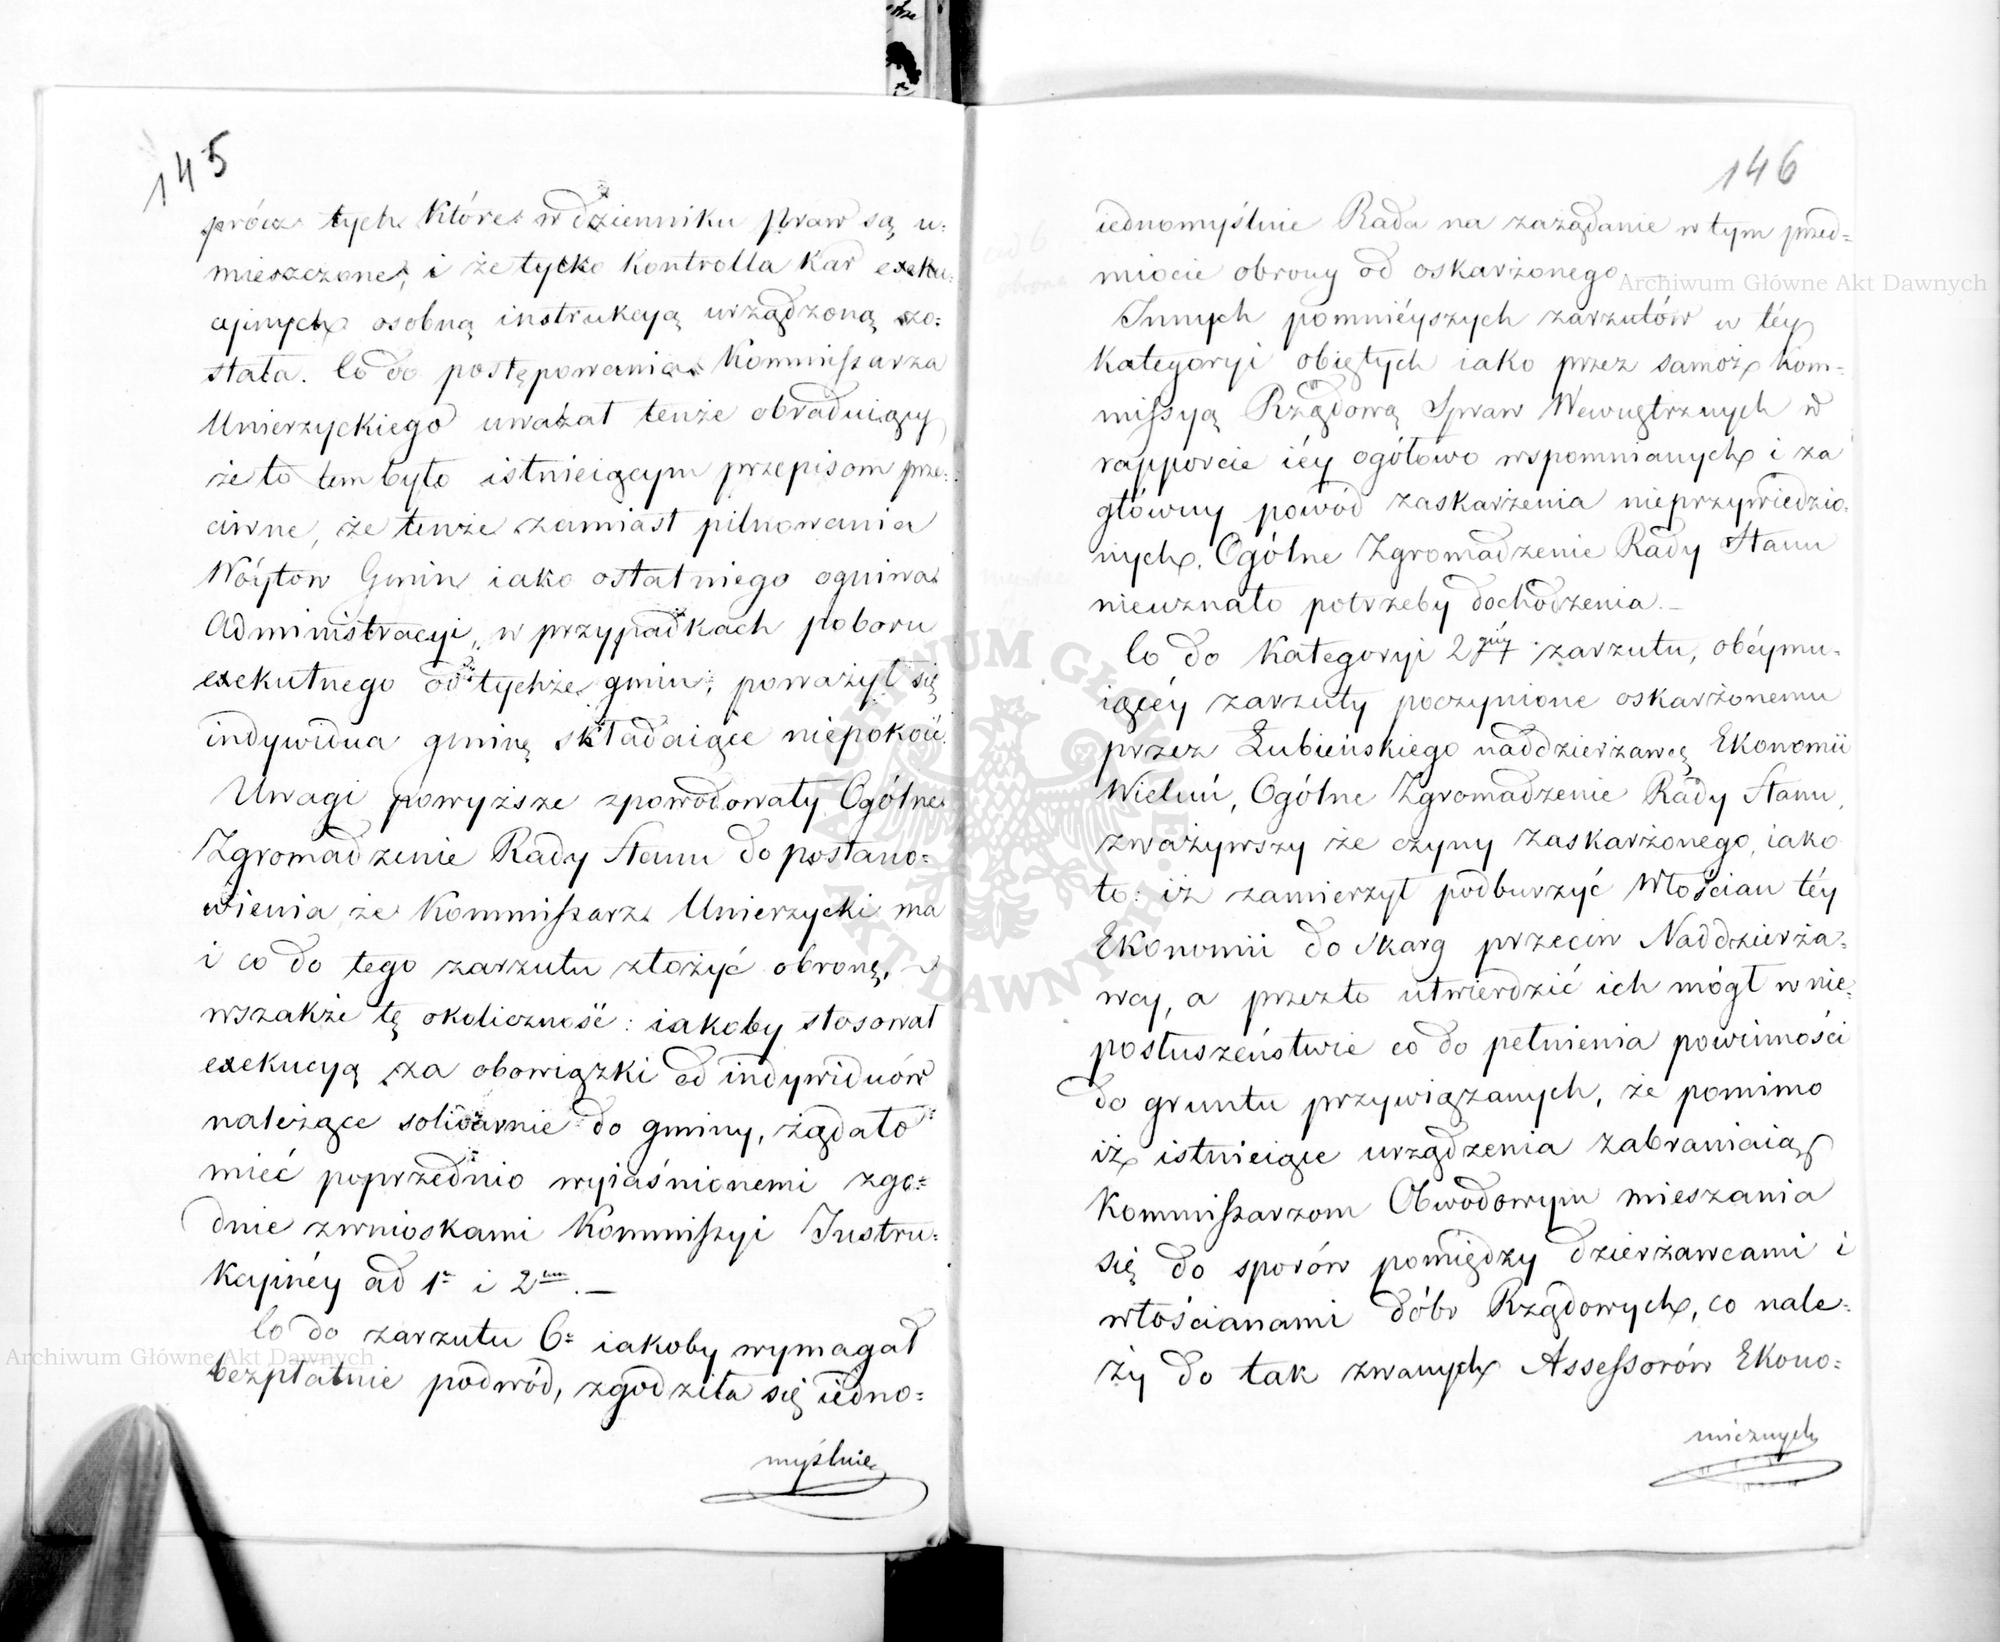 145
prócz tych które w dzienniku praw są u:
mieszczone, i że tylko kontrolla kar exeku:
cyjnych osobną instrukcyą urządzoną zo:
stała. Co do postępowania Kommissarza
Umierzyckiego uważał tenże obraduiący
że to tem było istnieiącym przepisom prze:
ciwne, że tenże zamiast pilnowania
Wóytów Gmin iako ostatniego ogniwa
Administracyi, w przypadkach poboru
exekutnego od tychże gmin, poważył się
indywidua gminę składaiące niépokoić.
Uwagi powyższe spowodowały Ogólne
Zgromadzenie Rady Stanu do postano:
wienia że Kommissarz Umierzycki ma
i co do tego zarzutu złożyć obronę,
wszakże tę okoliczność: iakoby stosował
exekucyą za obowiązki od indywiduów
należące solidarnie do gminy, żądało
mieć poprzednio wyiaśnionemi zgo:
dnie z wnioskami Kommissyi Instru:
kcyinéy ad 1º i 2um. —
Co do zarzutu 6º iakoby wymagał
bezpłatnie podwód, zgodziła się iedno:
myślnie
146
iednomyślnie Rada na zażądanie w tym przed=
miocie obrony od oskarżonego —
Innych pomniéyszych zarzutów w téy
kategoryi obiętych iako przez samąż Kom-
missyą Rządową Spraw Wewnętrznych w
rapporcie iéy ogółowo wspomnianych i za
główny powód zaskarżenia nieprzywiedzio:
nych, Ogólne Zgromadzenie Rady Stanu
nieuznało potrzeby dochodzenia. —
Co do kategoryi 2giéy zarzutu, obéymu:
iącéy zarzuty poczynione oskarżonemu
przez Łubieńskiego naddzierżawcę Ekonomii
Wieluń, Ogólne Zgromadzenie Rady Stanu,
zważywszy że czyny zaskarżonego, iako
to: iż zamierzył podburzyć Włościan téy
Ekonomii do skarg przeciw Naddzierża:
wcy, a przez to utwierdzić ich mógł w nie:
posłuszeństwie co do pełnienia powinności
do gruntu przywiązanych, że pomimo
iż istnieiące urządzenia zabraniaią
Kommissarzom Obwodowym mieszania
się do sporów pomiędzy dzierżawcami i
włościanami dóbr Rządowych, co nale:
ży do tak zwanych Assessorów Ekono:
micznych
Archiwum Główne Akt Dawnych
Archiwum Główne Akt Dawnych
ARCHIWUM GŁÓWNE AKT DAWNYCH